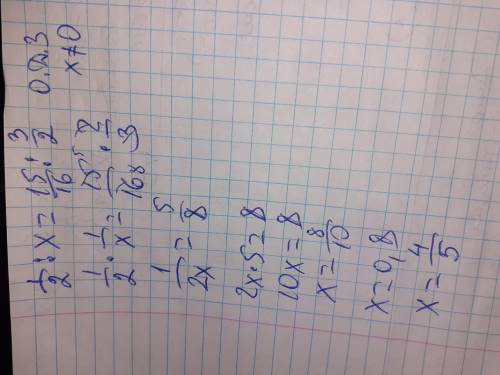 1/2 : x = 15/16 : 3/2 О.Д.З
1/2 · 1/x = 15⁵/16₈ · 2/3 x≠0
1/2x = 5/8
2x·5=8
10x=8
x = 8/10
x=0,8
x = 4/5